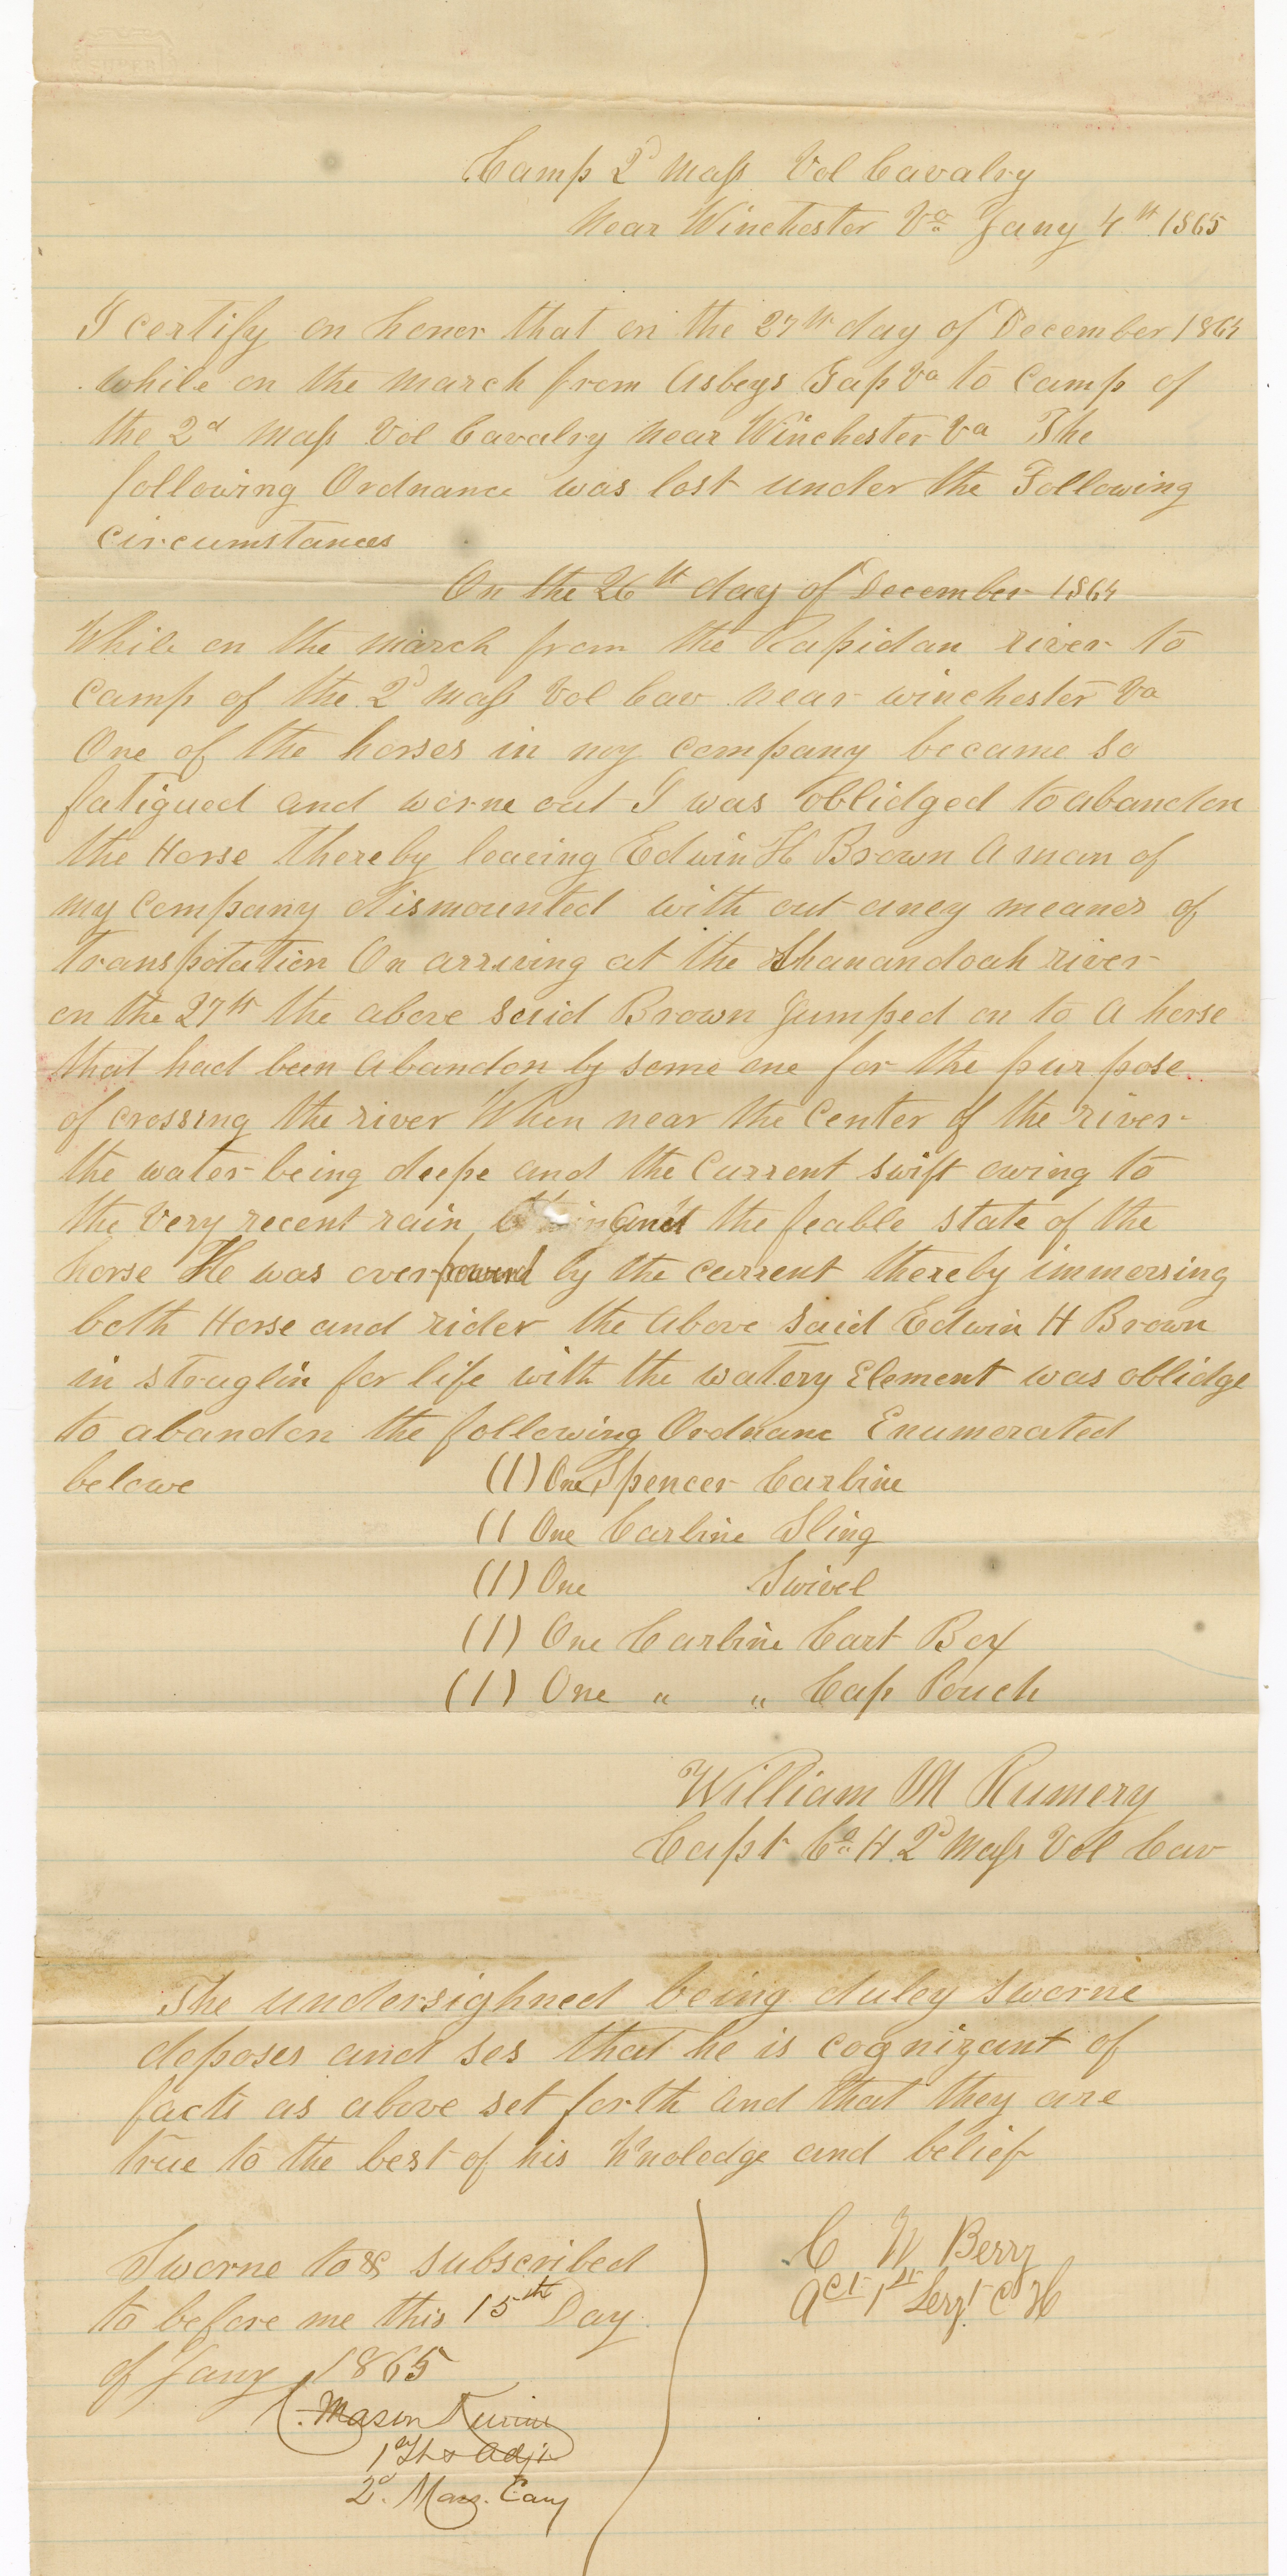 Camp 2d Mass Vol Cavalry
Near Winchester Va Jany 4th 1865
I certify on honor that on the 27th day of December 1864
while on the march from Asbeys Gap Va to Camp of
the 2d Mass Vol Cavalry near Winchester Va The
following Ordnance was lost under the Following
circumstances
On the 26th day of December 1864
While on the march from the Rapidan river to
Camp of the 2d Mass Vol Cav near winchester Va
One of the horses in my company became so
fatigued and worne out I was oblidged to abandon
the Horse thereby leaving Edwin H Brown A man of
my Company dismounted with out aney meanes of
transpotation On arriving at the Shanandoah river
on the 27th the above said Brown Jumped on to A horse
that had been Abandon by some one for the pur pose
of crossing the river When near the Center of the river
the water being deepe and the Current swift owing to
the very recent rain and the feable state of the
horse He was overpowerd by the current thereby immersing
both Horse and rider the Above said Edwin H Brown
in struglin for life with the watery Element was oblidge
to abandon the following Ordnanc Enumerated
belowe (1) One Spencer Carbine
(1 One Carbine Sling
(1) One Swivel
(1) One Carbine Cart Box
(1) One " " Cap Pouch
William M Rumery
Capt Co H 2d Mass Vol Cav
The undersighned being duley sworne
deposes and ses that he is cognizant of
facts as above set forth and that they are
true to the best of his knoledge and belief
C W Berry
Act 1st Sergt C H
Sworne to & subscribed
to before me this 15th Day
of Jany 1865
Mason
1st Lt & Adjt
2d Mass. Cavy